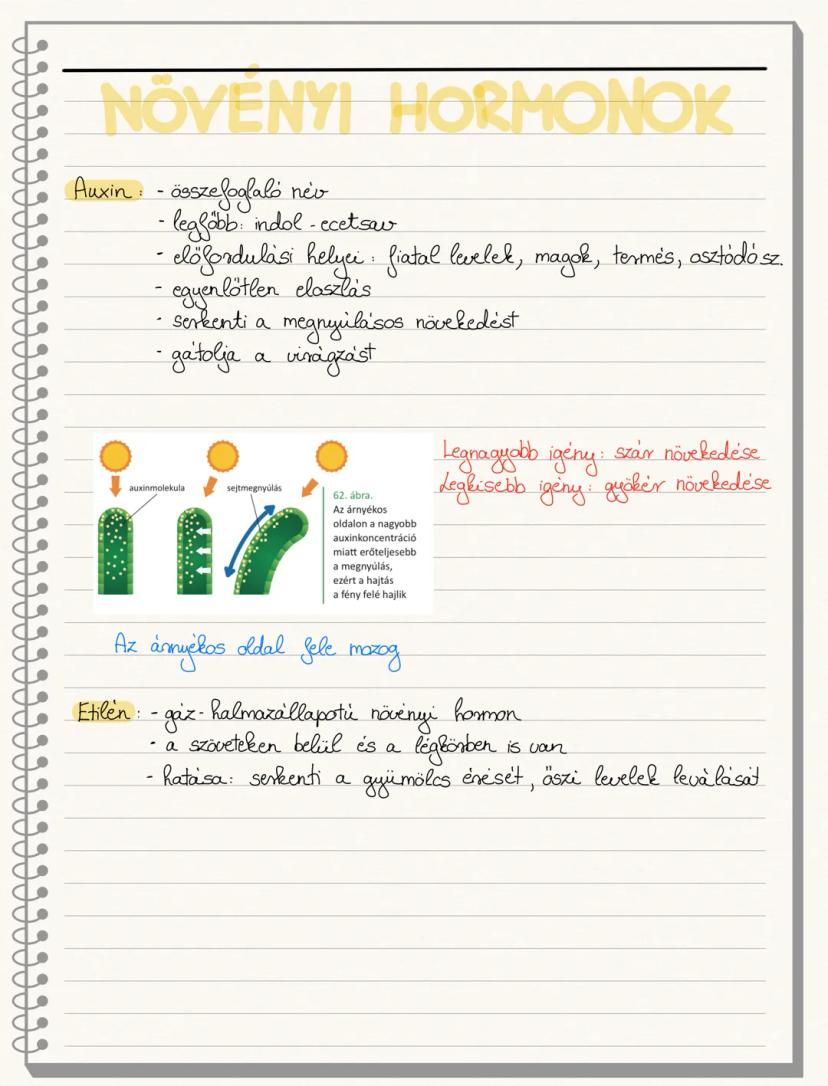 NÖVÉNYI HORMONOK
Auxin: - összefoglaló név
- legfőbb: indol-ecetsav
- előfordulási helyei: fiatal levelek, magok, termés, osztódó sz.
- egyenlőtlen eloszlás
- serkenti a megnyúlásos növekedést
- gátolja a virágzást
Legnagyobb igény: szár növekedése
Legkisebb igény: gyökér növekedése
auxinmolekula
sejtmegnyúlás
62. ábra.
Az árnyékos
oldalon a nagyobb
auxinkoncentráció
miatt erőteljesebb
a megnyúlás,
ezért a hajtás
a fény felé hajlik
Az árnyékos oldal fele mozog
Etilén: - gáz-halmazállapotú növényi hormon
- a szöveteken belül és a légkörben is van
- hatása: serkenti a gyümölcs érését, őszi levelek leválását